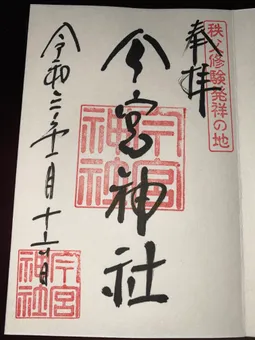 奉拝
秩父修験発祥の地
今宮神社
今宮
神社
令和二年一月十二日
今宮
神社